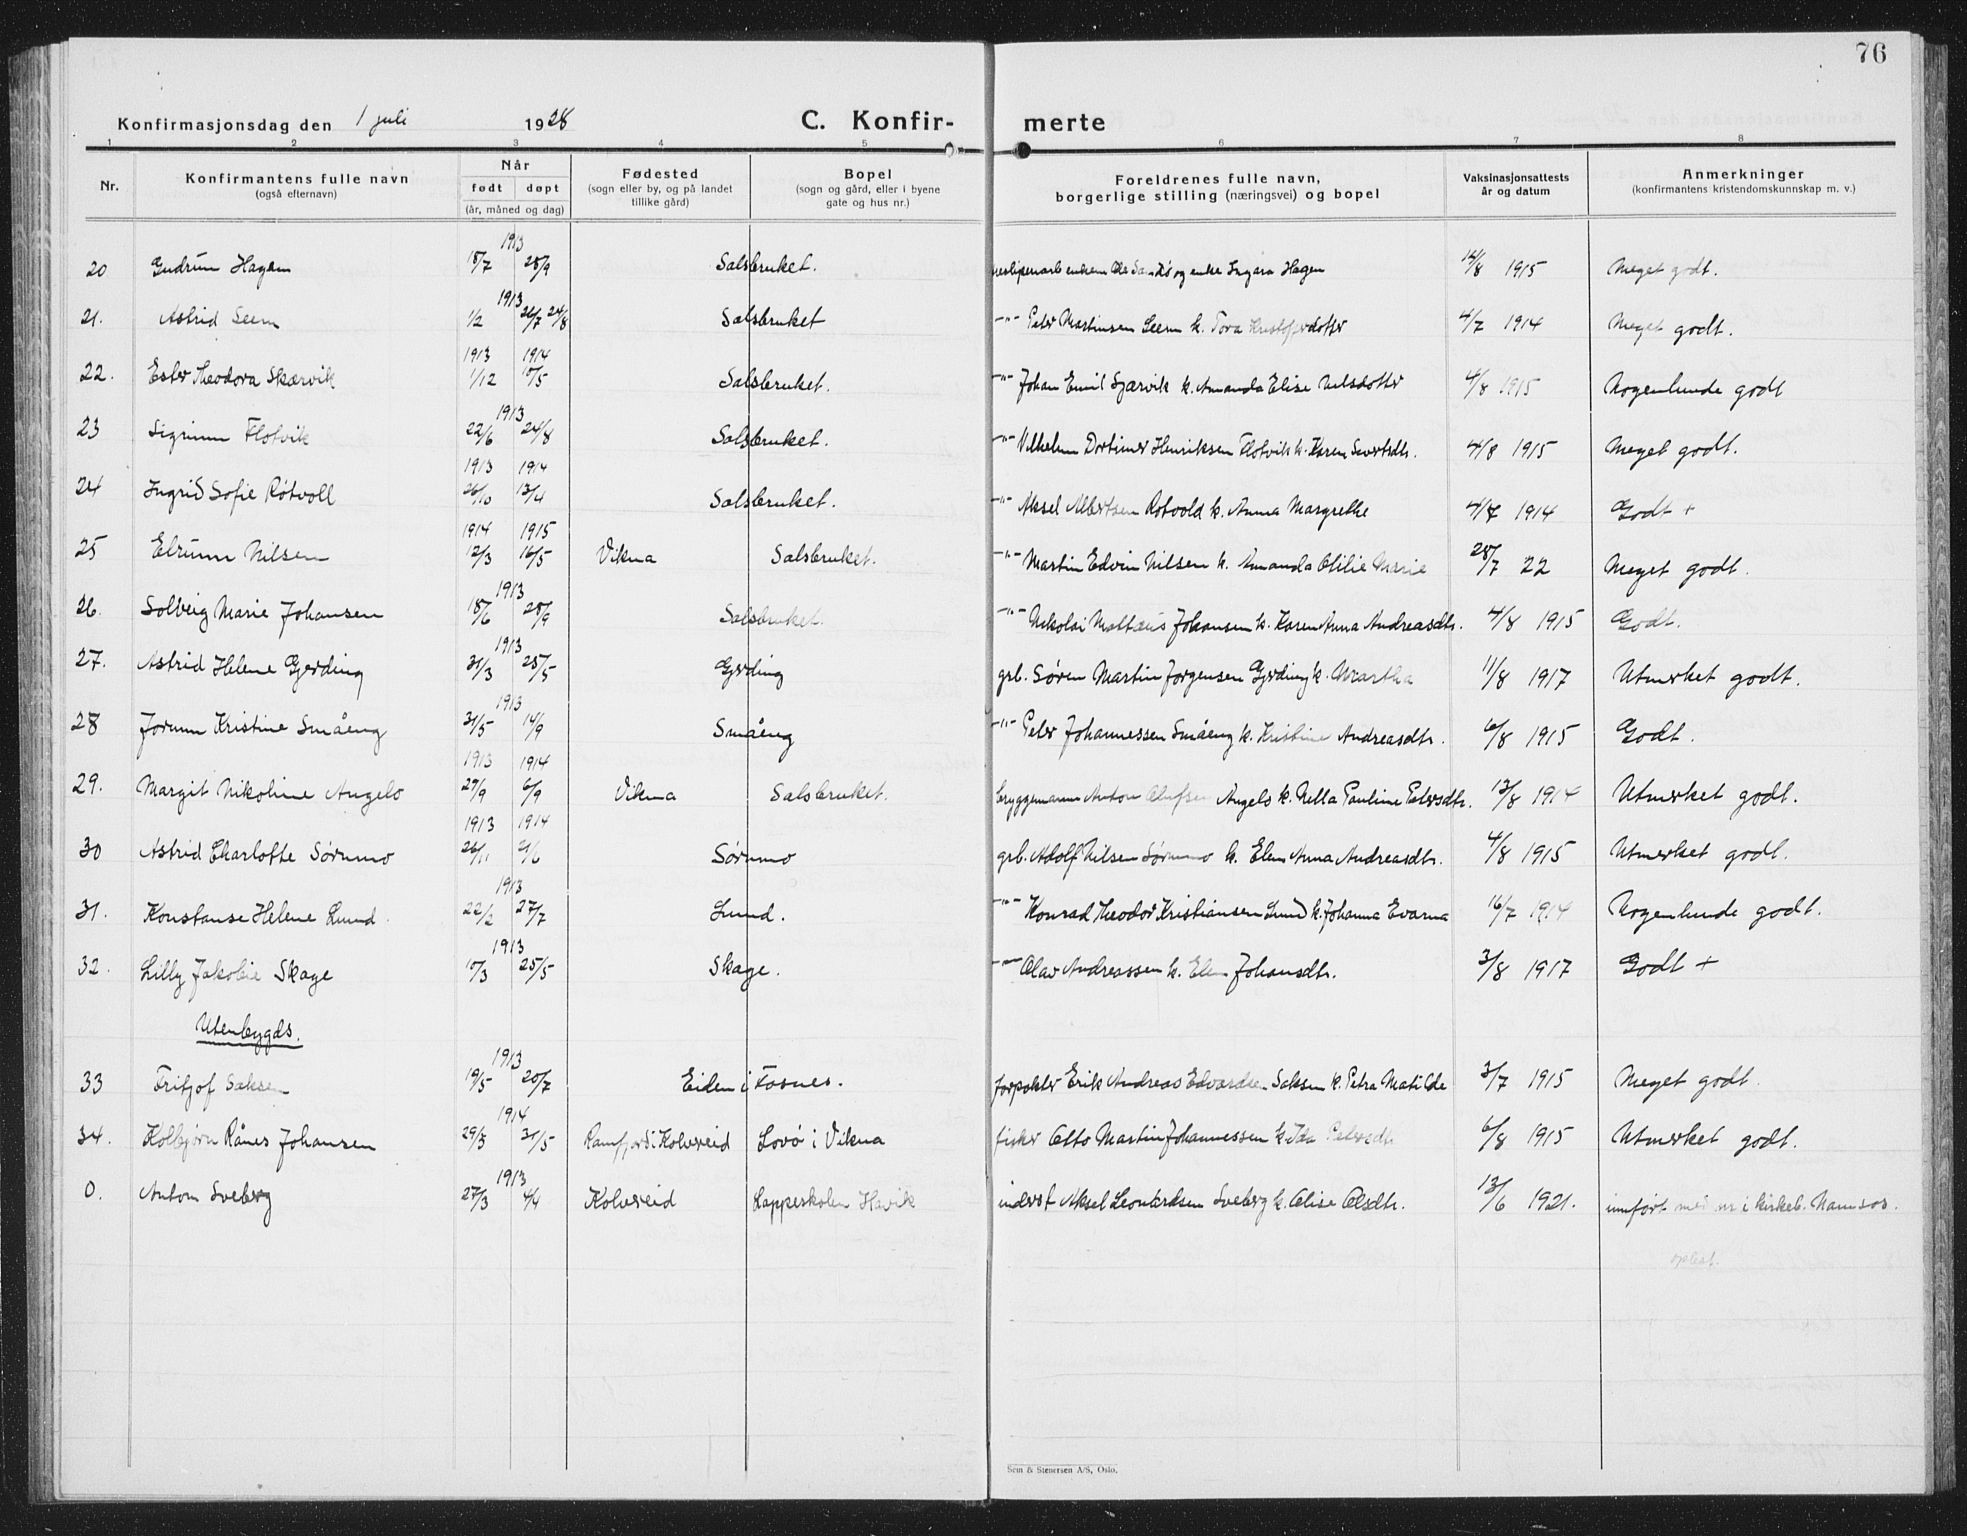 76
Konfirmasjonsdag den 1 juli 1928 C. Konfir- merte
1 2 3 4 5 6 7 8
Nr. Konfirmantens fulle navn (også efternavn) Når født døpt (år, måned og dag) Fødested (sogn eller by, og på landet tillike gård) Bopel (sogn og gård, eller i byene gate og hus nr.) Foreldrenes fulle navn, borgerlige stilling (næringsvei) og bopel Vaksinasjonsattests år og datum Anmerkninger (konfirmantens kristendomskunnskap m. v.)
1913
20 Gudrun Hagen 18/7 28/9 Salsbruket. og enke Ingara Hagen 14/8 1915 Meget godt.
1913
21. Astrid Seem 1/2 26/7 24/8 Salsbruket -"- Peter Martinsen Seem k. Tora Kristofferdotter 4/7 1914 Meget godt.
1913 1914
22. Ester Theodora Skærvik 1/12 10/5 Salsbruket. -"- Johan Emil Sjærvik k. Amanda Elise Nilsdotter 4/8 1915 Nogenlunde godt
1913
23 Sigrunn Flotvik 22/6 24/8 Salsbruket. -"- Vilhelm Dortimer Henriksen Flotvik k. Karen Sivertsdtr. 4/8 1915 Meget godt.
1913 1914
24 Ingrid Sofie Røtvoll 26/10 13/4 Salsbruket. -"- Aksel Albertsen Rotvold k. Anna Margrethe 4/7 1914 Godt +
1914 1915
25 Elrunn Nilsen 12/3 16/5 Vikna Salsbruket. -"- Martin Edvin Nilsen k. Amanda Otilie Marie 28/7 22 Meget godt.
1913
26. Solveig Marie Johansen 18/6 28/9 Salsbruket. -"- Nikolai Mattæus Johansen k. Karen Anna Andreasdtr. 4/8 1915 Godt.
1913
27. Astrid Helene Gjerding 31/3 25/5 Gjerding grb. Søren Martin Jørgensen Gjerding k. Martha 11/8 1917 Utmerket godt.
1913
28 Jorunn Kristine Småeng 31/5 14/9 Småeng -"- Peter Johannessen Småeng k. Kristine Andreasdtr. 6/8 1915 Godt.
1913 1914
29. Margit Nikoline Angelo 27/9 6/9 Vikna Salsbruket. bryggemann Anton Olufsen Angelo k. Nella Pauline Petersdtr. 13/8 1914 Utmerket godt.
1913 1914
30 Astrid Charlotte Sørumo 26/11 21/6 Sørumo grb. Adolf Nilsen Sørumo k. Elen Anna Andreasdtr. 4/8 1915 Utmerket godt.
1913
31. Konstanse Helene Lund 22/2 27/7 Lund. -"- Konrad Theodor Kristiansen Lund k. Johanna Evarna 16/7 1914 Nogenlunde godt.
1913
32. Lilly Jakobie Skage 10/3 25/5 Skage. -"- Olav Andreassen k. Elen Johansdtr. 3/8 1917 Godt +
Utenbygds.
1913
33 Fritjof Saksen 19/5 20/7 Eiden i Fosnes. forpakter Erik Andreas Edvardsen Saksen k. Petra Matilde 3/7 1915 Meget godt.
1914
34. Kolbjørn Rånes Johansen 29/3 31/5 Ramfjord i Kolvereid Lovø i Vikna fisker Otto Martin Johannessen k. Ida Petersdtr 6/8 1915 Utmerket godt.
1913
0. Anton Sveberg 27/3 4/4 Kolvereid Lappeskolen Havik inderst Aksel Leonardsen Sveberg k. Elise Olsdtr. 13/6 1921. innført med nr i kirkeb. Namsos.
Sem & Stenersen A/S, Oslo.